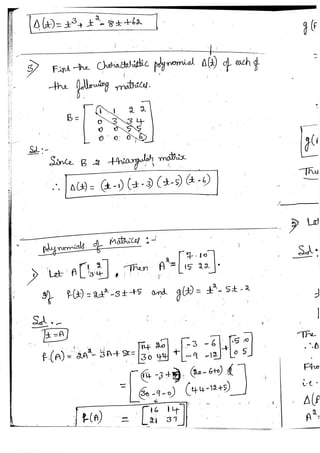 Δ(t) = t³ + t² - 8t + 62
g(
3) Find the Characteristic polynomial Δ(t) of each of
the following matrices.
B = [1 1 2 2
0 3 3 4
0 0 5 5
0 0 0 6]
g(
Sol:-
Since B is triangular matrix
Thu
∴ Δ(t) = (t-1)(t-3)(t-5)(t-6)
2) Let
Polynomials of Matrices :-
Sol:
1) Let A[1 2
3 4], Then A² = [7 10
15 22].
If f(t) = 2t² - 3t + 5 and g(t) = t² - 5t - 2
Sol :-
t = A
The
f(A) = 2A² - 3A + 5I = [14 20
30 44] + [-3 -6
-9 -12] + [5 0
0 5]
= [(14 - 3 + 5) (20 - 6 + 0)
(30 - 9 - 0) (44 - 12 + 5)]
i.e.
Δ(
f(A) = [16 14
21 37]
A²